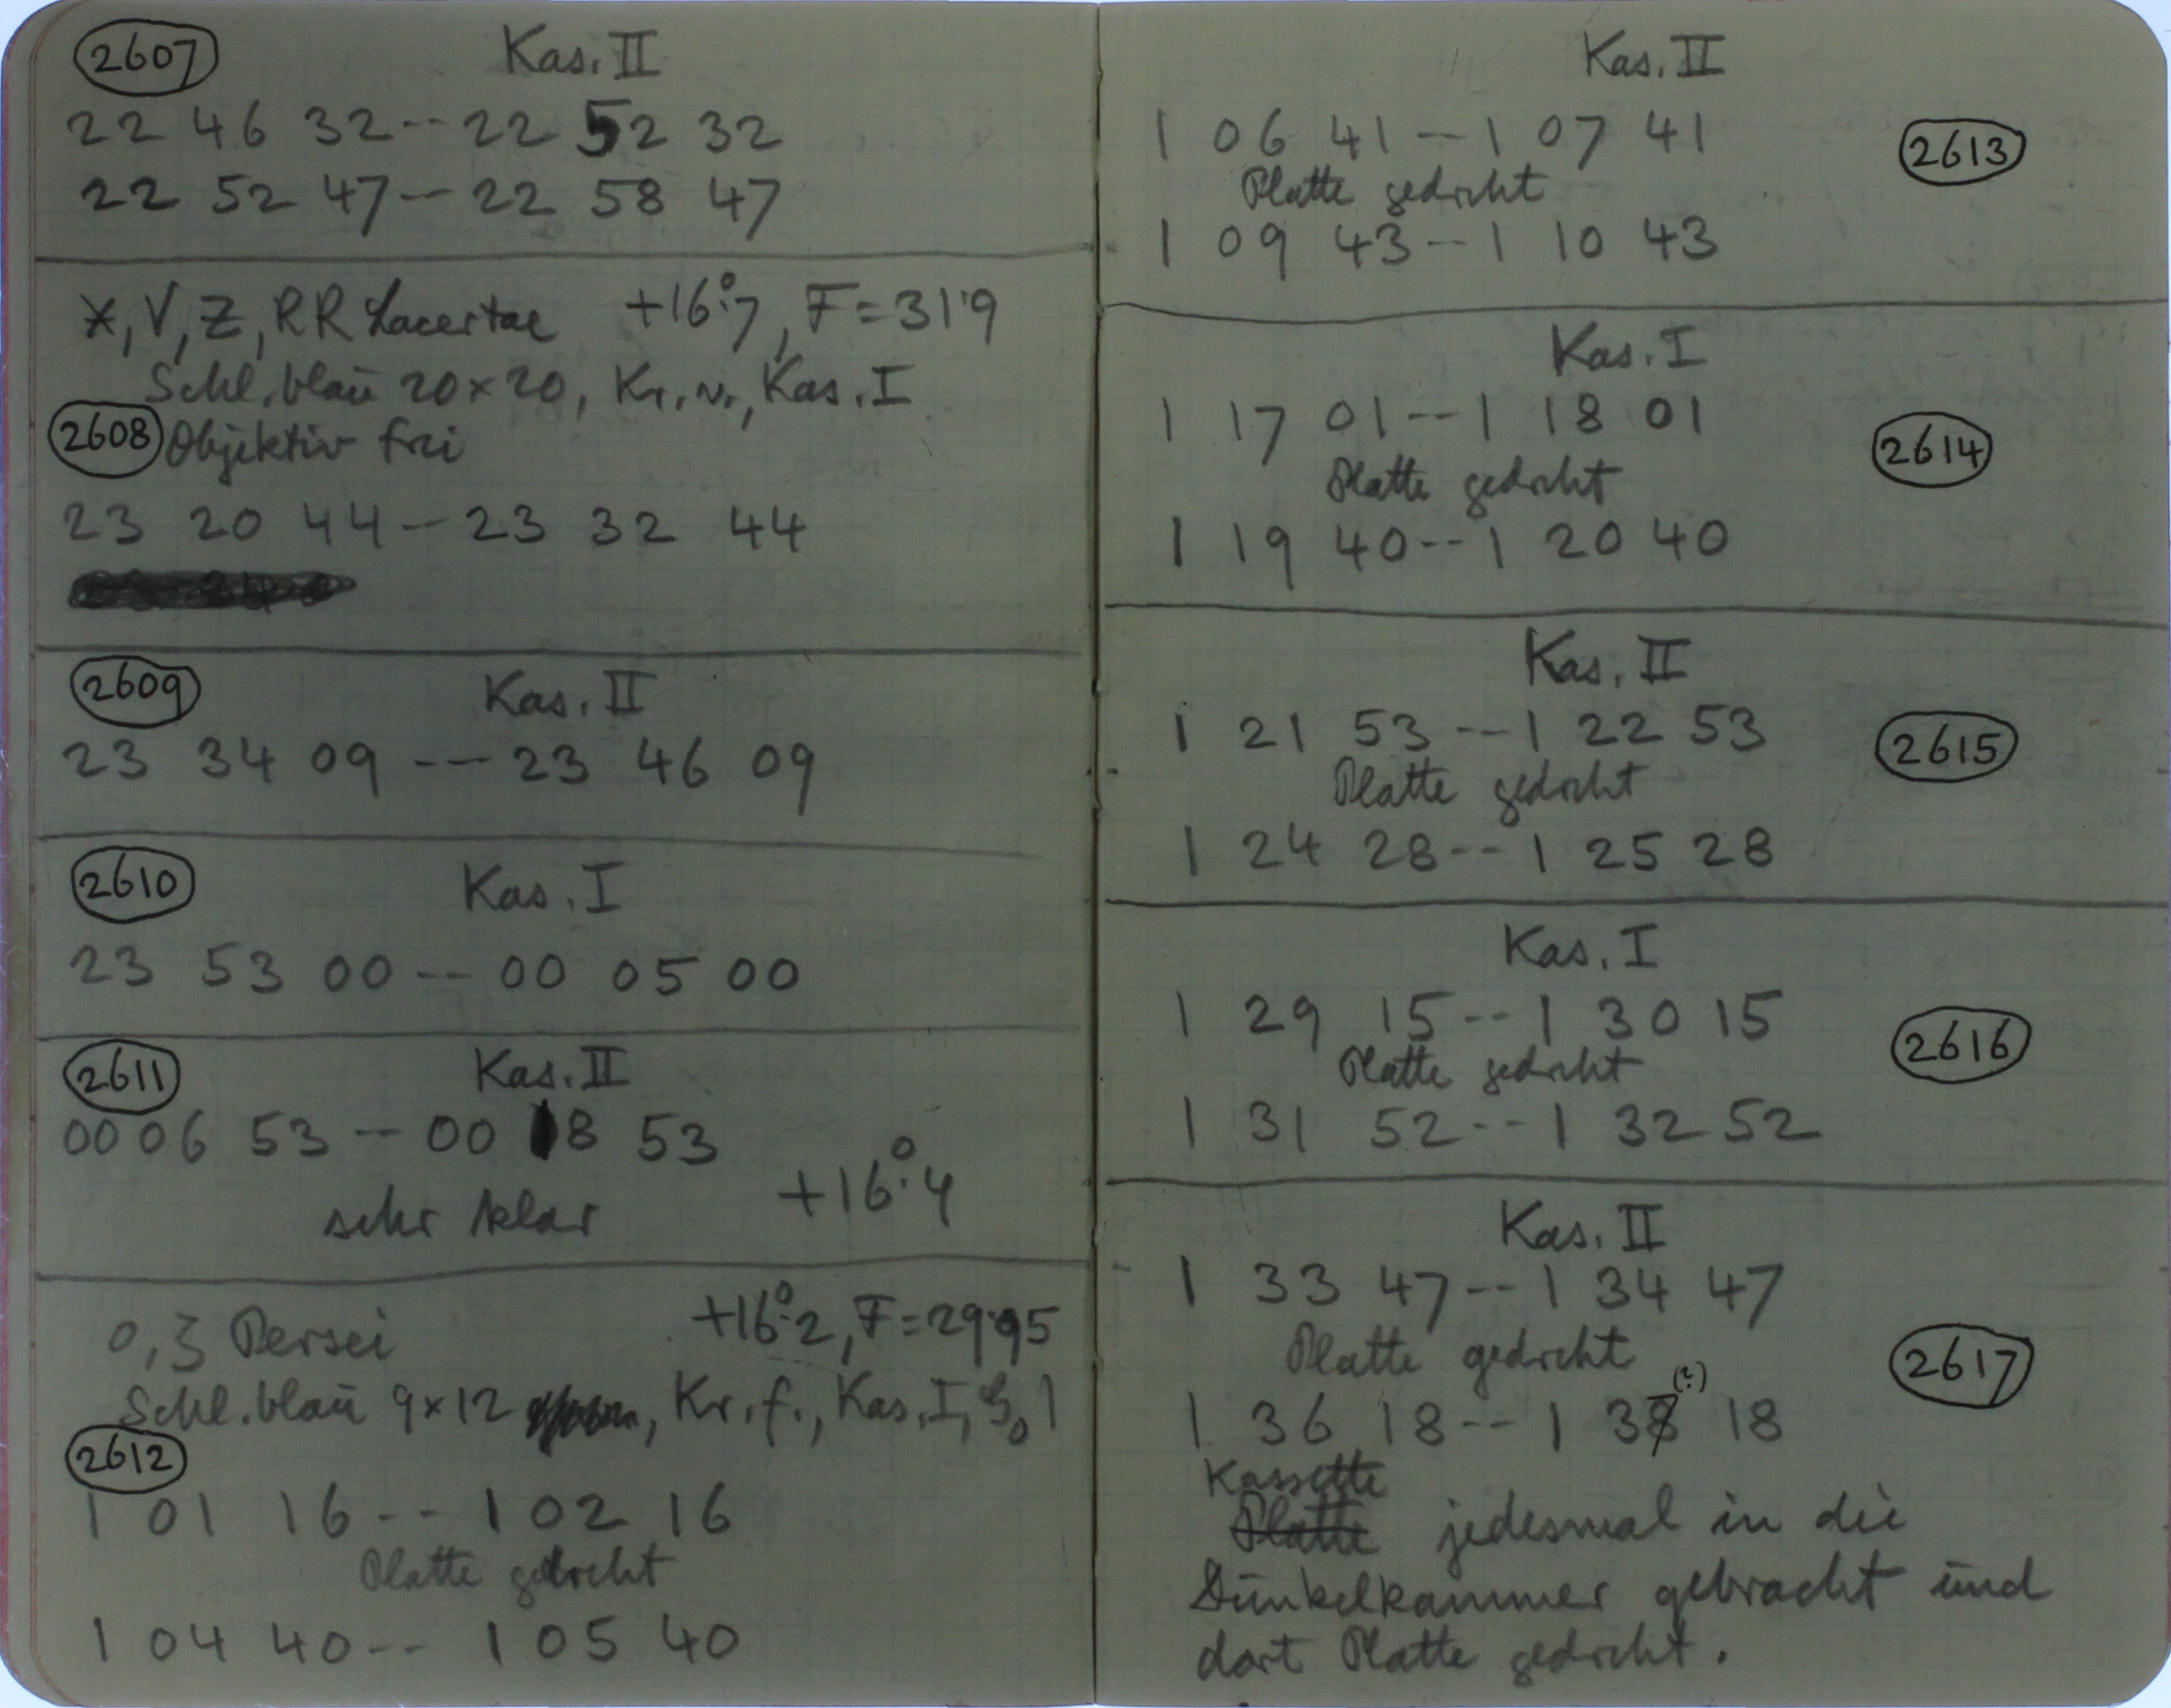 2607 Kas. II
22 46 32 -- 22 52 32
22 52 47 -- 22 58 47
X, V, Z, RR Lacertae +16°.7, F=31.9
Schl. blau 20×20, Kr. v., Kas. I
2608 Objektiv frei
23 20 44 -- 23 32 44
2609 Kas. II
23 34 09 -- 23 46 09
2610 Kas. I
23 53 00 -- 00 05 00
2611 Kas. II
00 06 53 -- 00 18 53
sehr klar +16°.4
o, ζ Persei +16°.2, F=29.95
Schl. blau 9×12, Kr. f., Kas. I,
2612
1 01 16 -- 1 02 16
Platte gedreht
1 04 40 -- 1 05 40
Kas. II
1 06 41 -- 1 07 41 2613
Platte gedreht
1 09 43 -- 1 10 43
Kas. I
1 17 01 -- 1 18 01
Platte gedreht 2614
1 19 40 -- 1 20 40
Kas. II
1 21 53 -- 1 22 53 2615
Platte gedreht
1 24 28 -- 1 25 28
Kas. I
1 29 15 -- 1 30 15 2616
Platte gedreht
1 31 52 -- 1 32 52
Kas. II
1 33 47 -- 1 34 47
Platte gedreht 2617
1 36 18 -- 1 37 (?) 18
Kassette
Platte jedesmal in die
Dunkelkammer gebracht und
dort Platte gedreht.